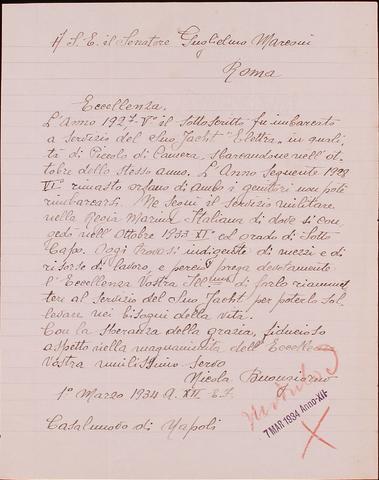 A S. E. il Senatore Guglielmo Marconi
Roma
Eccellenza.
L'Anno 1927-V° il sottoscritto fu imbarcato
a servizio del Suo Jacht "Elettra" in quali
tà di Piccolo di Camera, sbarcandone nell'ot
tobre dello stesso anno. L'Anno Seguente 1928
VI° rimasto orfano di ambo i genitori non poté
rimbarcarsi. Ne seguì il servizio militare
nella Regia Marina Italiana di dove si con
gedò nell'Ottobre 1933-XI° col grado di Sotto
Capo. Oggi trovasi indigente di mezzi e di
risorse di lavoro, e perciò prega devotamente
l'Eccellenza Vostra Ill.ma di farlo riammet
tere al servizio del Suo Jacht per poterlo sol
levare nei bisogni della vita.
Con la speranza della grazia, fiducioso
aspetto nella magnanimità dell'Eccellenza
Vostra umilissimo servo
Nicola Buongiorno
1° Marzo 1934 A. XII E.F.
7 MAR 1934 Anno XII
Casalnuovo di Napoli